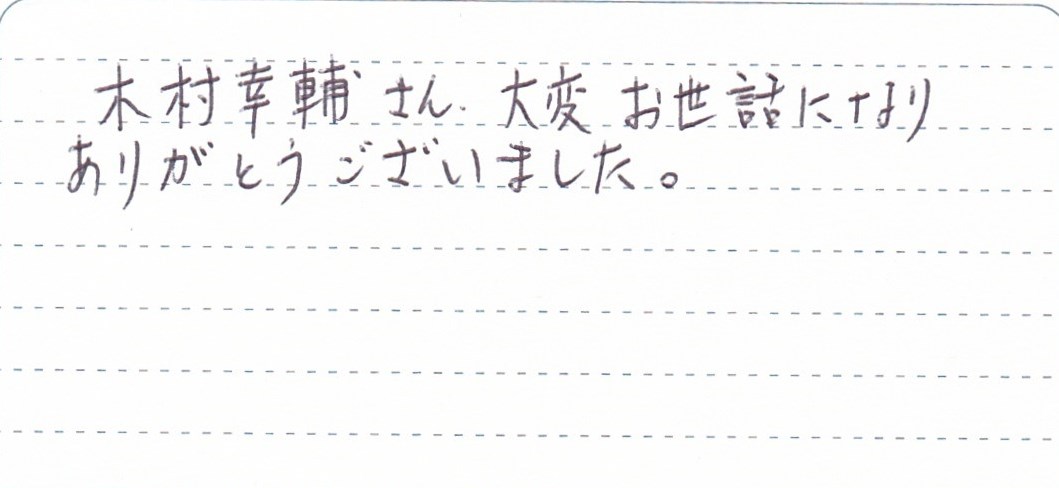 木村幸輔さん、大変お世話になり
ありがとうございました。